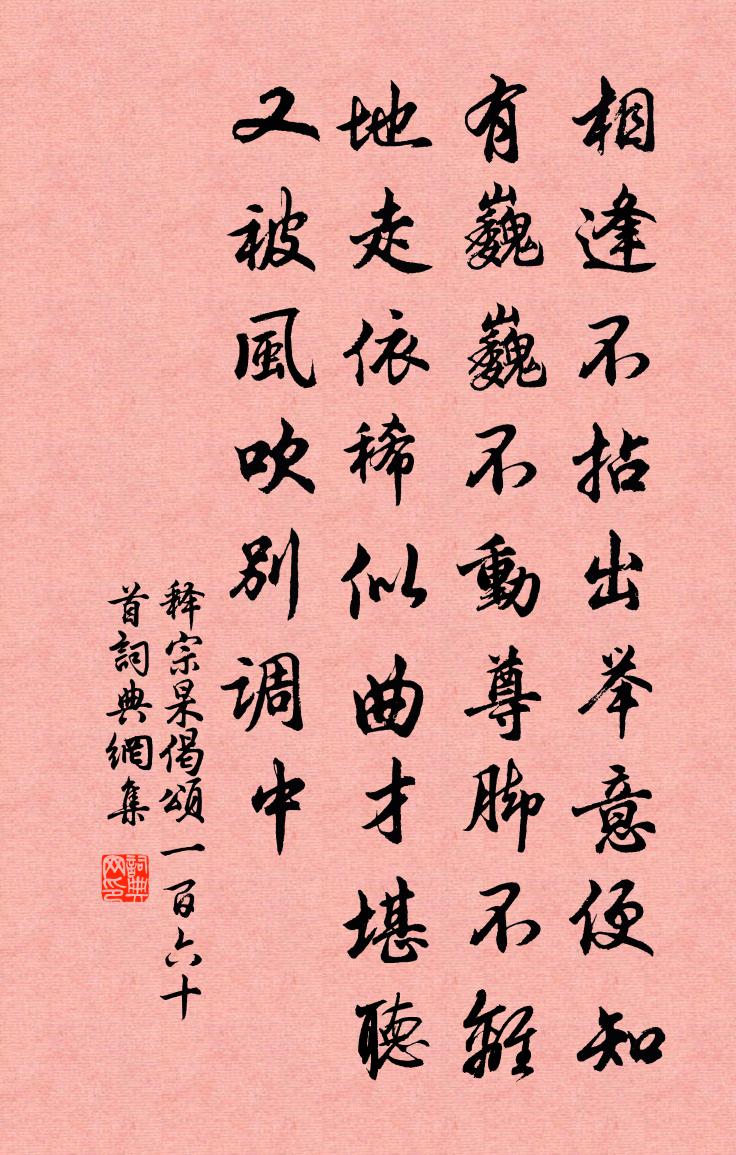 相逢不拈出举意便知
有巍巍不動尊脚不離
地走依稀似曲才堪聽
又被風吹别调中
释宗杲偈頌一百六十
首詞典網集
詞典
网印